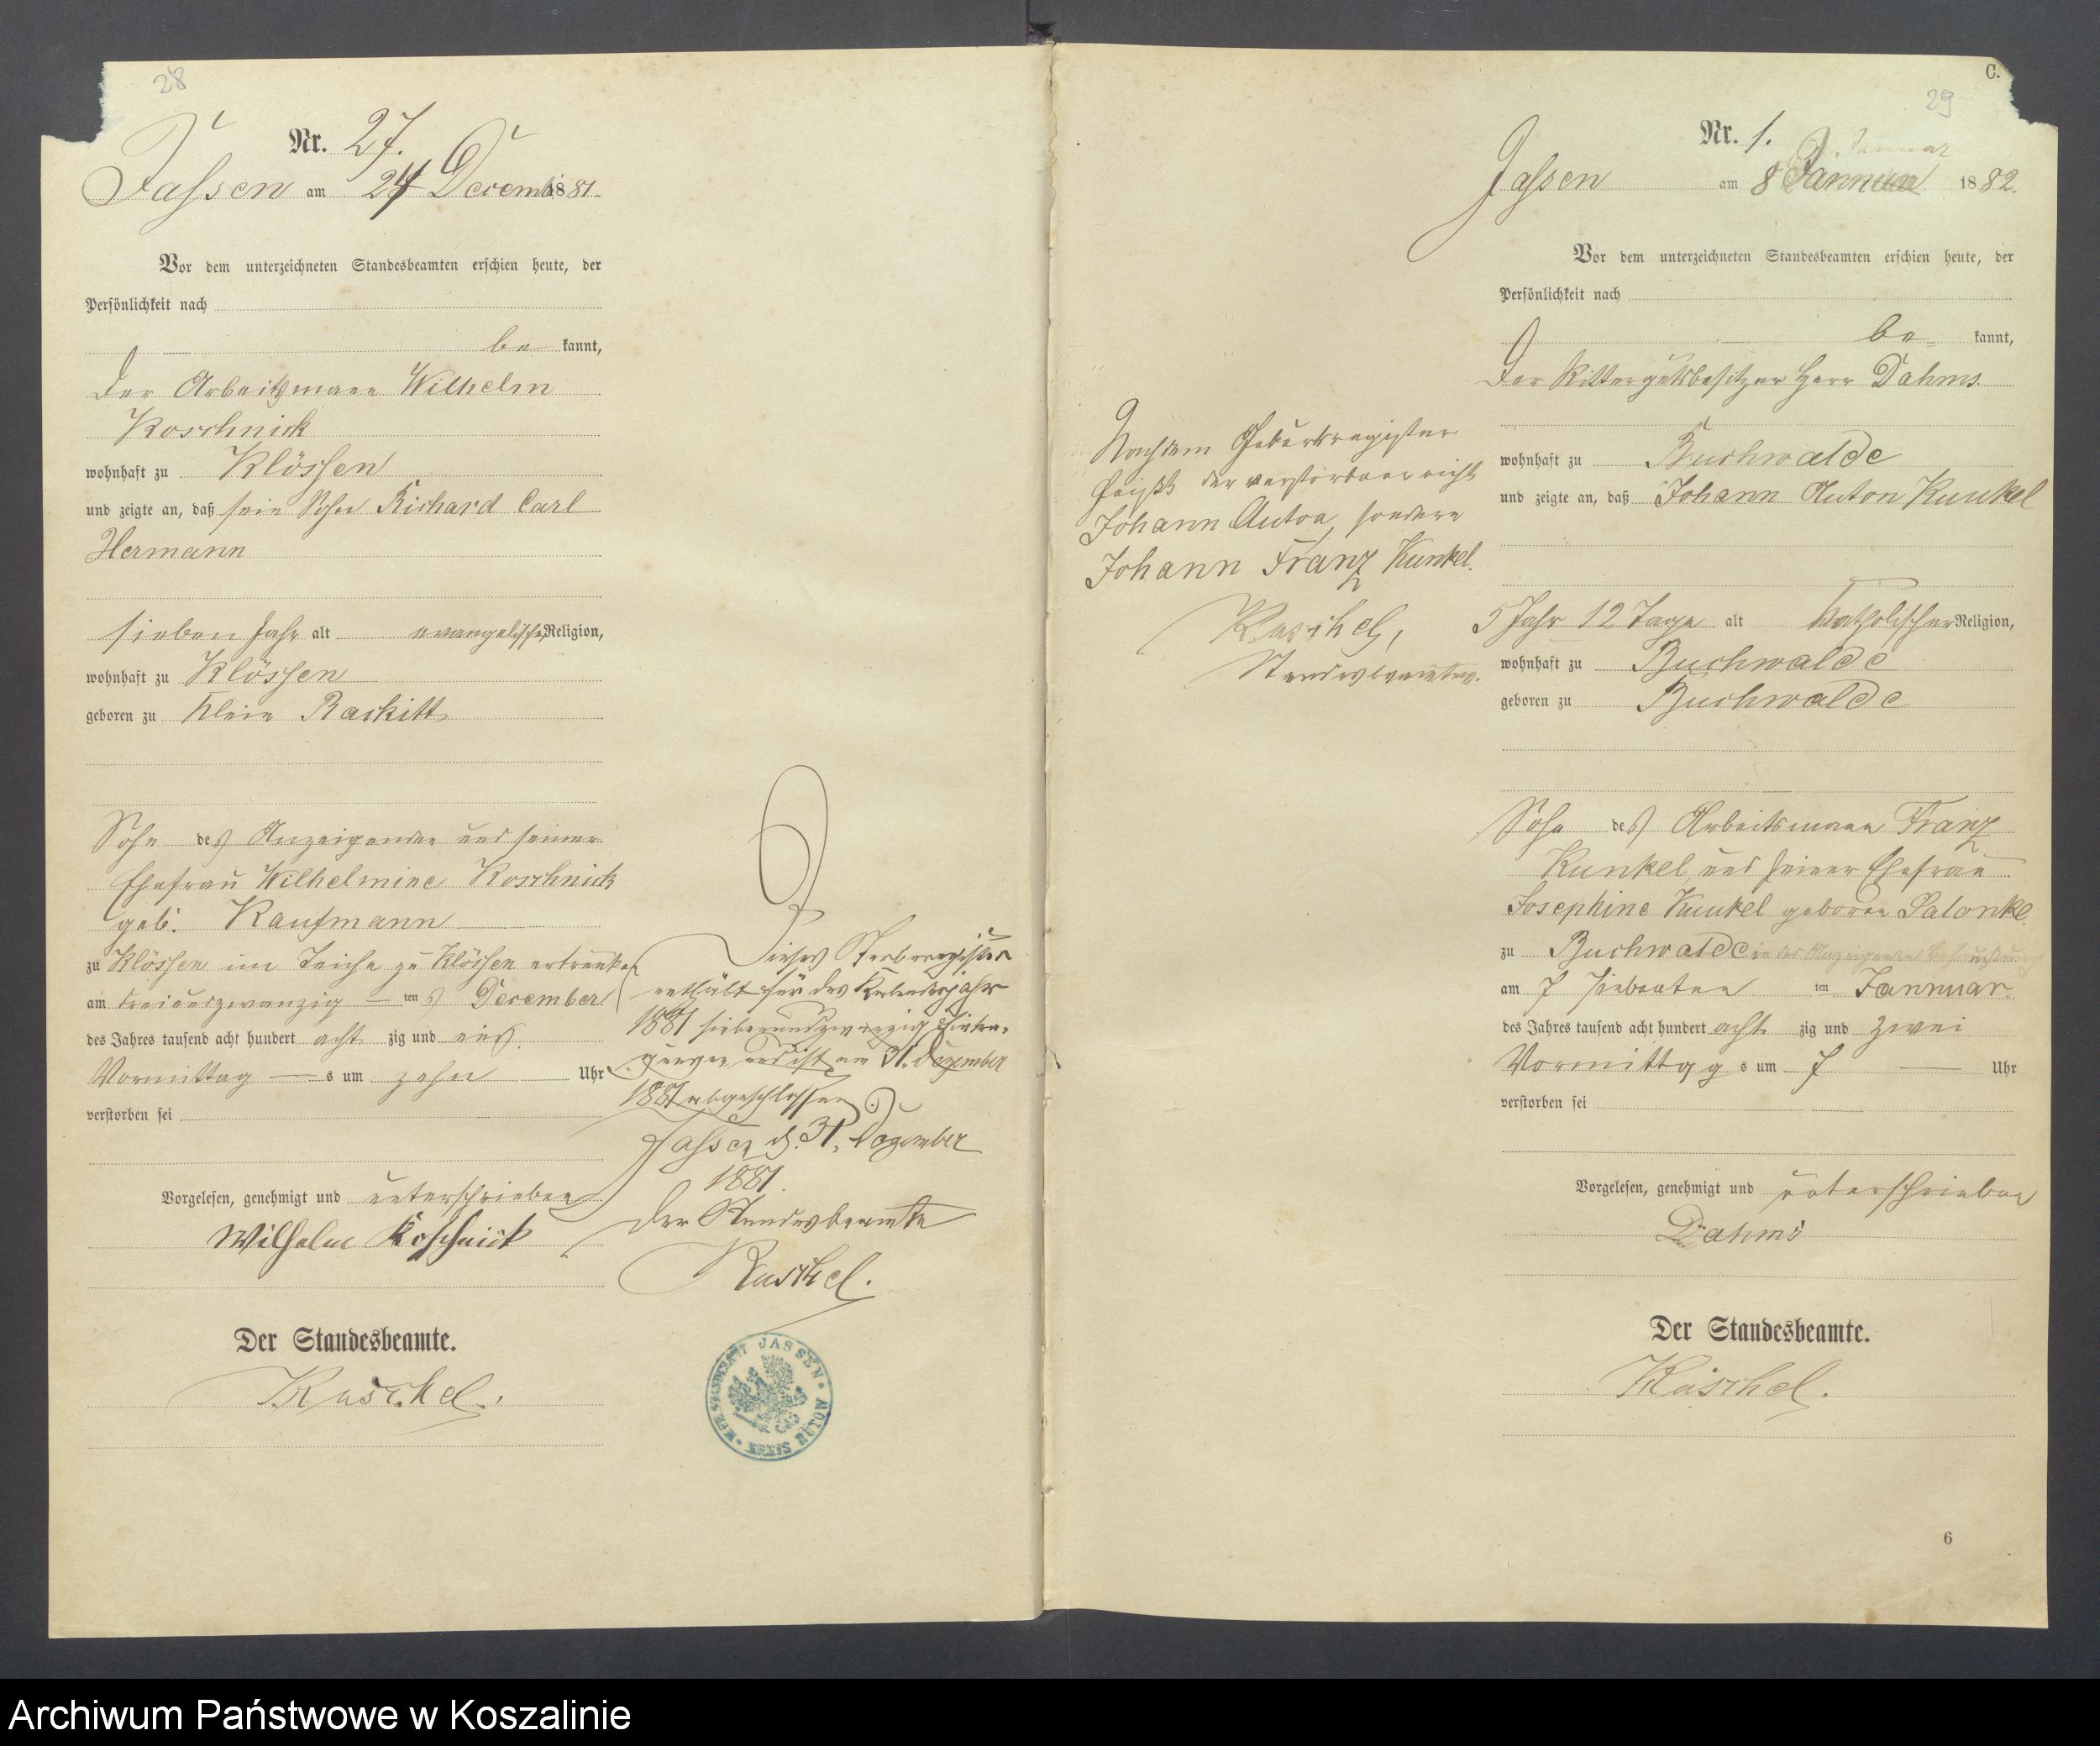 28
Nr. 27.
Jassen am 24 Decemb 1881.
Vor dem unterzeichneten Standesbeamten erschien heute, der
Persönlichkeit nach
be kannt,
der Arbeitsmann Wilhelm
Koschnick
wohnhaft zu Klössen
und zeigte an, daß sein Sohn Richard Carl
Hermann
sieben Jahr alt evangelischer Religion,
wohnhaft zu Klössen
geboren zu Klein Rackitt
Sohn des Anzeigenden und seiner
Ehefrau Wilhelmine Koschnick
geb. Kaufmann
zu Klössen im Teiche zu Klössen ertrunken
am dreiundzwanzig ten December
des Jahres tausend acht hundert acht zig und eins
Vormittag s um zehn Uhr
verstorben sei
Vorgelesen, genehmigt und unterschrieben
Wilhelm Koschnick
Der Standesbeamte.
Raschel.
Dieses Sterberegister
enthält für das Kalenderjahr
1881 siebenundzwanzig Eintra-
gungen und ist am 31. Dezember
1881 abgeschlossen.
Jassen d. 31. Dezember
1881.
Der Standesbeamte
Raschel.
JASSEN
KREIS BÜTOW
C.
29
Nr. 1.
Januar
Jassen am 8 Januar 1882.
Vor dem unterzeichneten Standesbeamten erschien heute, der
Persönlichkeit nach
be- kannt,
Der Rittergutsbesitzer Herr Dahms
wohnhaft zu Buchwalde
und zeigte an, daß Johann Anton Kunkel
5 Jahr 12 Tage alt katholischer Religion,
wohnhaft zu Buchwalde
geboren zu Buchwalde
Sohn des Arbeitsmann Franz
Kunkel, und seiner Ehefrau
Josephine Kunkel geboren Palonke
zu Buchwalde in des Anzeigenden Behausung
am 7 siebenten ten Jannuar.
des Jahres tausend acht hundert acht zig und zwei
Vormittag s um 7 Uhr
verstorben sei
Vorgelesen, genehmigt und unterschrieben
Dahms
Der Standesbeamte.
Raschel.
Nach dem Geburtsregister
heißt der verstorbene nicht
Johann Anton, sondern
Johann Franz Kunkel.
Raschel,
Standesbeamter.
6
Archiwum Państwowe w Koszalinie